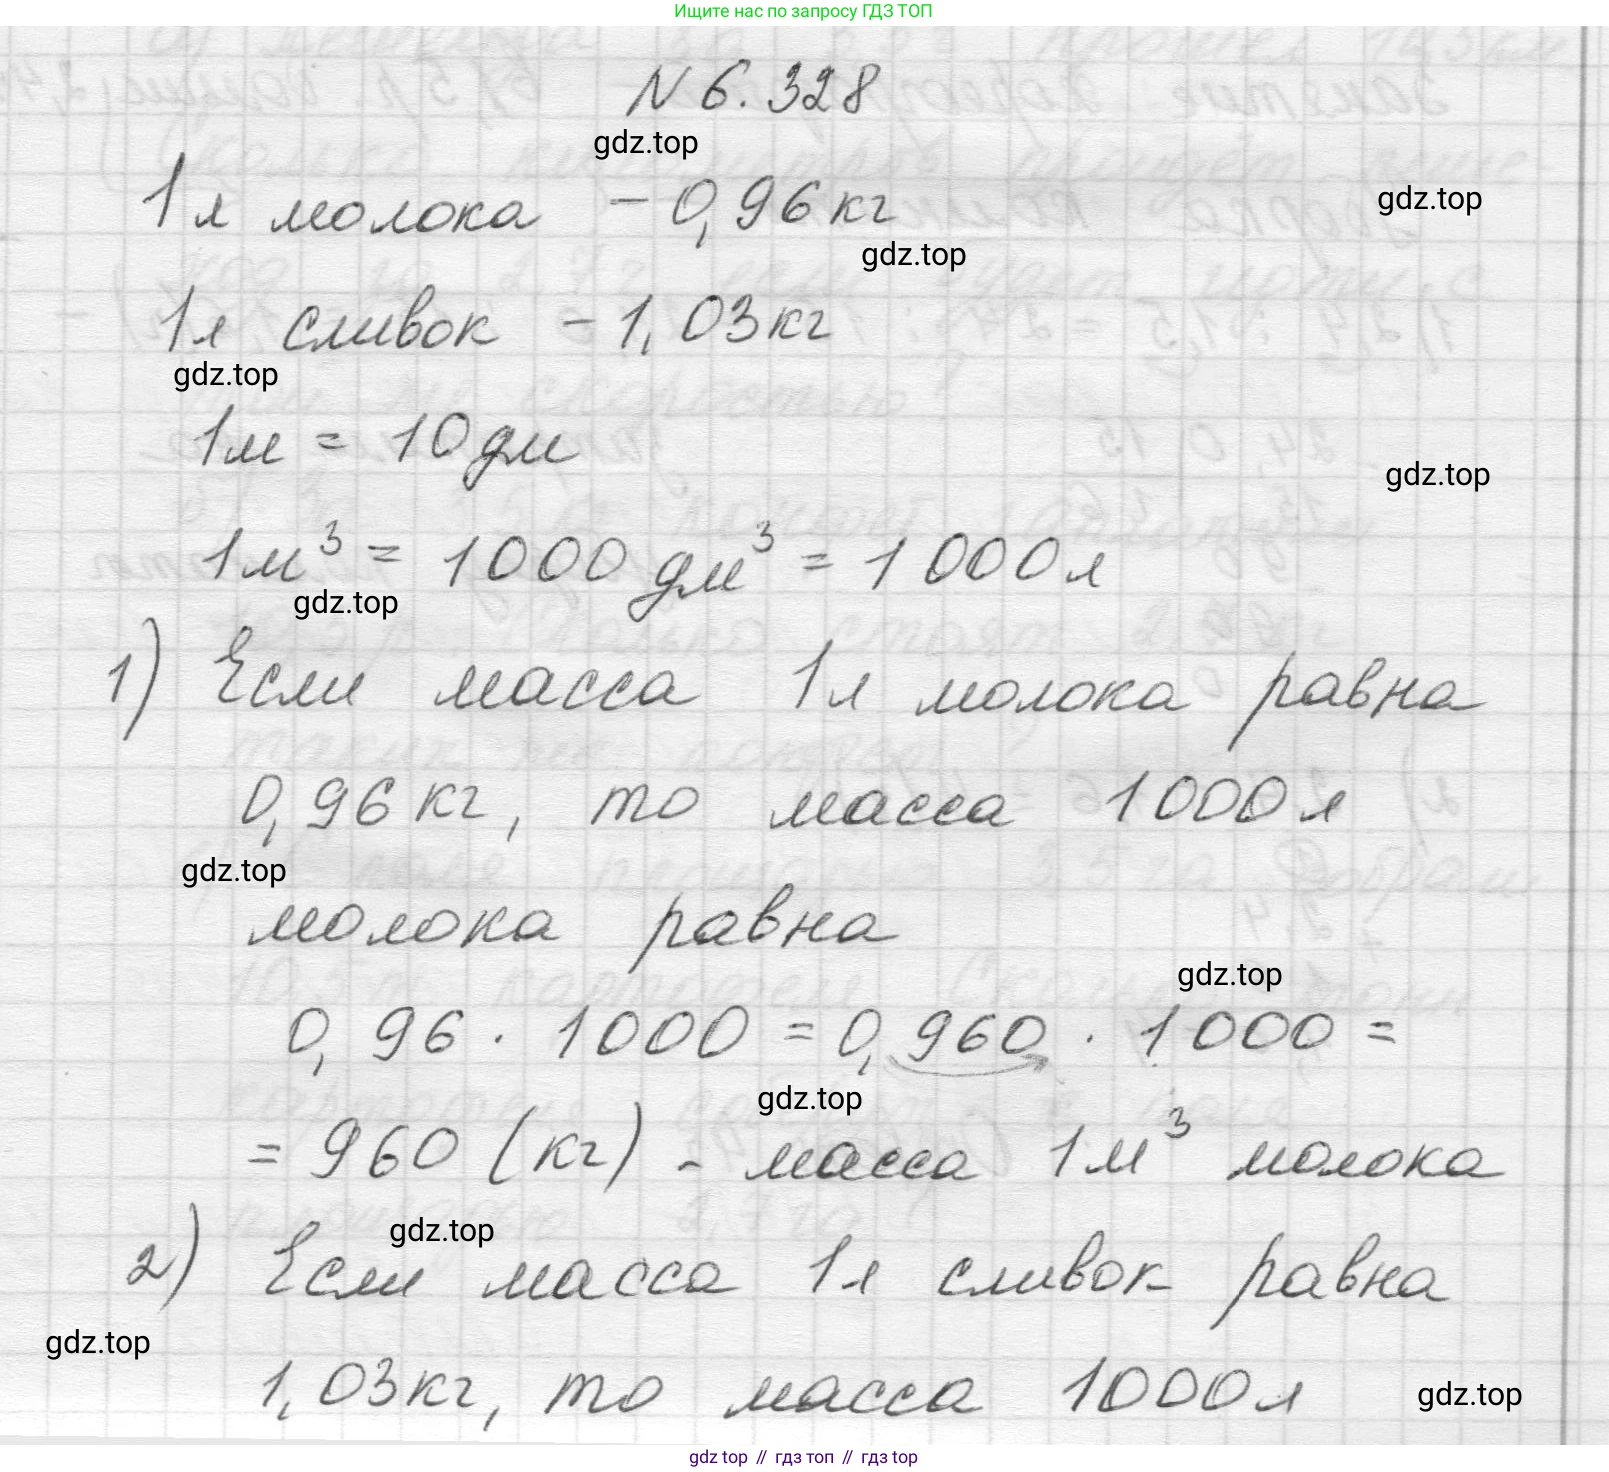 Ищите нас по запросу ГДЗ ТОП
N 6. 328
gdz.top
1л молока - 0,96кг
gdz.top
gdz.top
1л сливок - 1,03кг
gdz.top
1м = 10дм
gdz.top
1м³ = 1000 дм³ = 1000л
gdz.top
1) Если масса 1л молока равна
0,96кг, то масса 1000л
gdz.top
молока равна
gdz.top
0,96 · 1000 = 0,960 · 1000 =
gdz.top
= 960 (кг) - масса 1м³ молока
gdz.top
2) Если масса 1л сливок равна
gdz.top
1,03кг, то масса 1000л
gdz.top
gdz top // гдз топ // гдз top